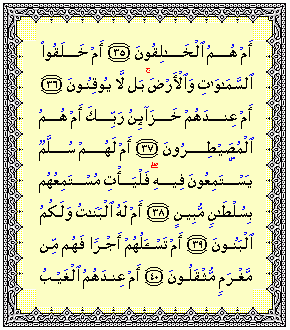 أَمْ هُمُ ٱلْخَـٰلِقُونَ ۝٣٥ أَمْ خَلَقُوا۟
ٱلسَّمَـٰوَٰتِ وَٱلْأَرْضَ ۚ بَل لَّا يُوقِنُونَ ۝٣٦
أَمْ عِندَهُمْ خَزَآئِنُ رَبِّكَ أَمْ هُمُ
ٱلْمُصَۣيْطِرُونَ ۝٣٧ أَمْ لَهُمْ سُلَّمٌ
يَسْتَمِعُونَ فِيهِ ۖ فَلْيَأْتِ مُسْتَمِعُهُم
بِسُلْطَـٰنٍ مُّبِينٍ ۝٣٨ أَمْ لَهُ ٱلْبَنَـٰتُ وَلَكُمُ
ٱلْبَنُونَ ۝٣٩ أَمْ تَسْـَٔلُهُمْ أَجْرًا فَهُم مِّن
مَّغْرَمٍ مُّثْقَلُونَ ۝٤٠ أَمْ عِندَهُمُ ٱلْغَيْبُ